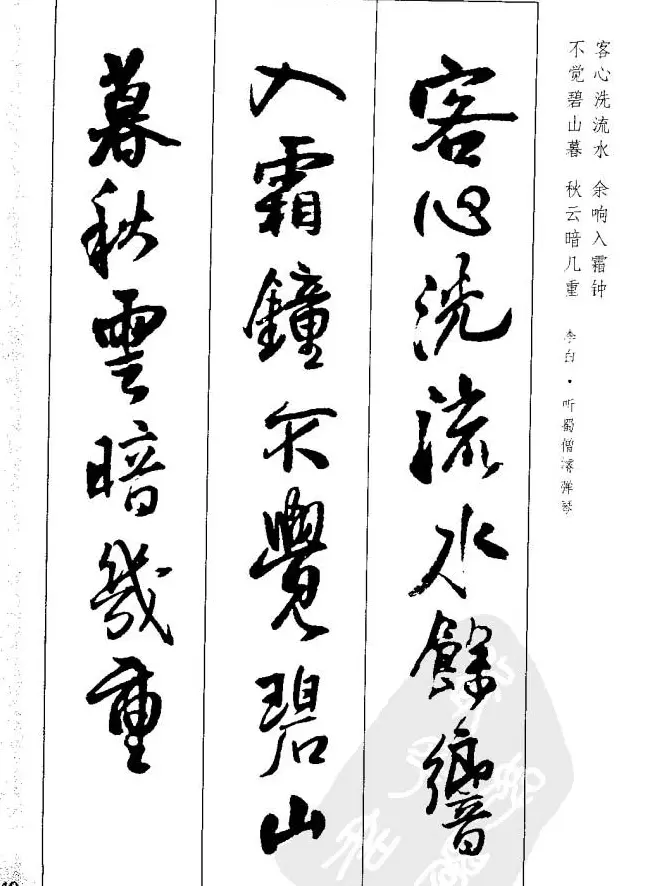 客心洗流水 余响入霜钟
不觉碧山暮 秋云暗几重
李白·听蜀僧濬弹琴
客心洗流水餘響
入霜鐘不覺碧山
暮秋雲暗幾重